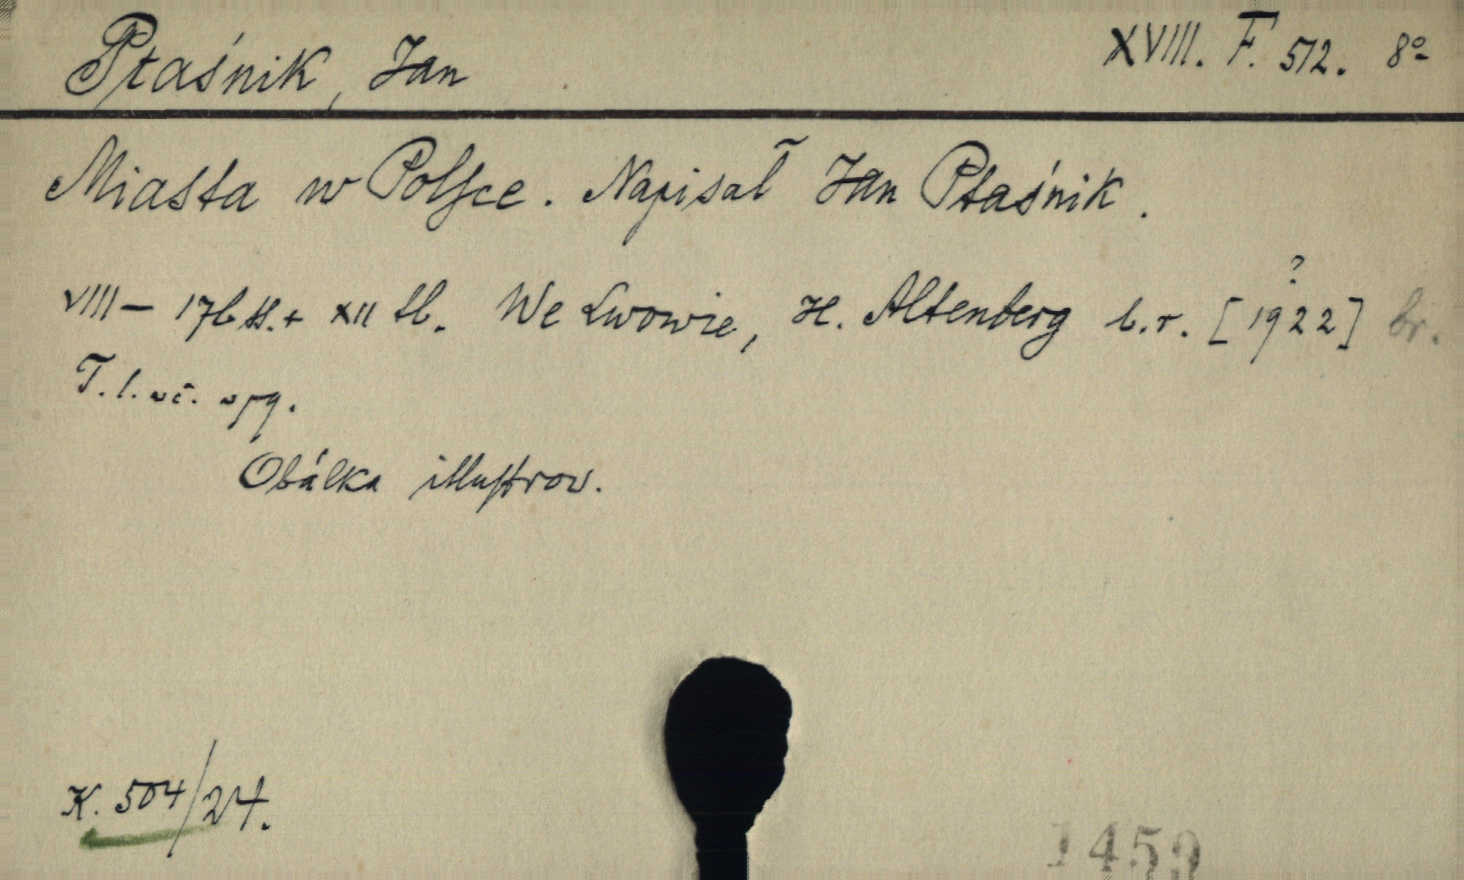 Ptaśnik, Jan
XVIII. F. 512. 8º
Miasta w Polsce. Napisał Jan Ptaśnik.
VIII — 176 st. + XII tb. We Lwowie, H. Altenberg b. r. [1922?] br.
T. l. vč.
Obálka illustrov.
K. 504/24.
1459